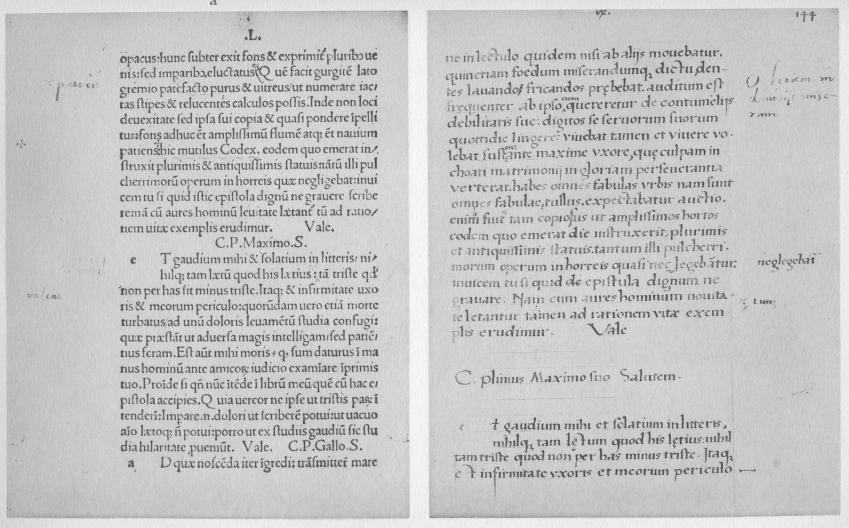 a
.L.
opacus: hunc subter exit fons & exprimit̃ pluribꝰ ue
nis: sed imparibꝰ, eluctatus Q uẽ facit gurgitẽ lato
gremio patefacto purus & uitreus/ ut numerare iac/
tas stipes & relucentes calculos possis. Inde non loci
deuexitate sed ipsa sui copia & quasi pondere ĩpelli
tur: fons adhuc et̃ amplissimũ flumẽ atq; et̃ nauium
patiens hic mutilus Codex. eodem quo emerat in/
struxit plurimis & antiquissimis statuis: tãtũ illi pul
cherrimorũ operum in horreis quæ negligebat: inui
cem tu si quid istic epistola dignũ ne grauere scribe
re: nã cũ aures hominũ leuitate lætant̃ tũ ad ratio/
nem uitæ exemplis erudimur. Vale.
C. P. Maximo. S.
e T gaudium mihi & solatium in litteris, ni/
hilq; tam lætũ quod his lætius: tã triste qđ
non per has sit minus triste. Itaq; & infirmitate uxo
ris & meorum periculo: quorũdam uero etiã morte
turbatus/ ad unũ doloris leuamẽtũ studia confugi:
quæ præstãt ut aduersa magis intelligam/ sed patiẽ/
tius feram. Est aũt mihi moris + q; sum daturus ĩ ma
nus hominũ ante amicoꝝ iudicio examĩare ĩprimis
tuo. Proĩde si qñ nũc ĩtẽde ĩ librũ meũ quẽ cũ hac e/
pistola accipies. Q uia uereor ne ipse ut tristis paꝝ ĩ
tenderĩ: Impare .n. dolori ut scriberẽ potui: ut uacuo
aĩo lætoq; ñ potui: porro ut ex studiis gaudiũ sic stu
dia hilaritate ꝓueniũt. Vale. C. P. Gallo. S.
a D quæ noscẽda iter ĩgredi: trãsmitter̃ mare
144
ne in lectulo quidem nisi ab alijs mouebatur.
quinetiam foedum miserandumq; dictu, den-
tes lauandos fricandos prębebat. auditum est
frequenter ab ipso, cum quereretur de contumelijs
debilitatis suę: digitos se seruorum suorum
quottidie lingere: viuebat tamen et viuere vo-
lebat sustentante maxime vxore, quę culpam in
choati matrimonij in gloriam perseuerantia
verterat. habes omnes fabulas vrbis nam sunt
omnes fabulae, tullus. expectabatur auctio.
enim fuit tam copiosus ut amplissimos hortos
eodem quo emerat die instruxerit, plurimis
et antiquissimis statuis. tantum illi pulcherri-
morum operum in horreis quasi neglegebatur.
neglegebat
inuicem tu si quid de epistula dignum ne
grauare. Nam cum aures hominum nouita-
te letantur tamen ad rationem vitæ exem
plis erudimur. Vale
C. plinius Maximo suo Salutem.
e t gaudium mihi et solatium in litteris,
nihilq; tam lętum quod his lętius: nihil
tam triste quod non per has minus triste. Itaq;
et infirmitate vxoris et meorum periculo